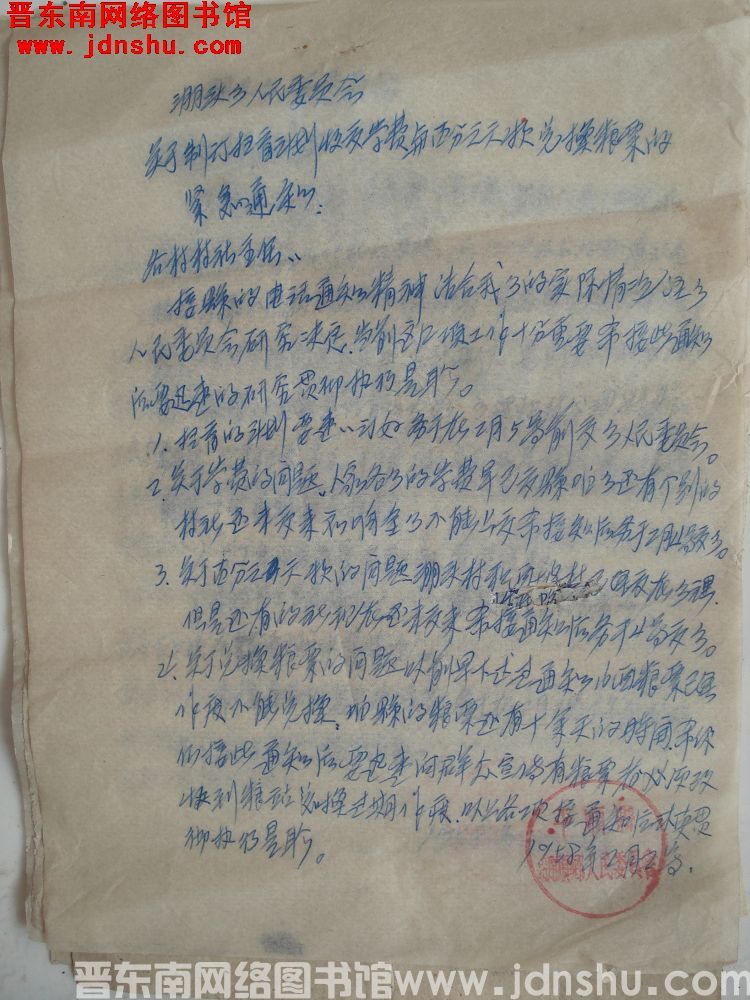 晋东南网络图书馆
www.jdnshu.com
人民委员会
关于制订扫盲计划收交学费与百分之二款兑换粮票的
紧急通知：
各村村社主任：
接县的电话通知精神结合我乡的实际情况经乡
人民委员会研究决定，当前这几项工作十分重要希接此通知
后要迅速的研究贯彻执行是盼。
1. 扫盲的计划要速订好务于在2月5号前交乡人民委员会。
2. 关于学费的问题，各乡的学费早已交县咱乡还有个别的
村社还未交来影响全乡不能上交希接知后务于2月4号交乡。
3. 关于百分之二款的问题
但是还有的社现在还未交来希接通知后务于4号交乡。
关于兑换粮票的问题以前早不过通知旧粮票已
作废不能兑换，咱县的粮票还有十余天的时间，希你
们接此通知后要迅速的向群众宣传有粮票者必须
快到粮站兑换过期作废，以上各项接通知后认真贯
彻执行是盼。
1958年2月2号
人民委员会
晋东南网络图书馆www.jdnshu.com